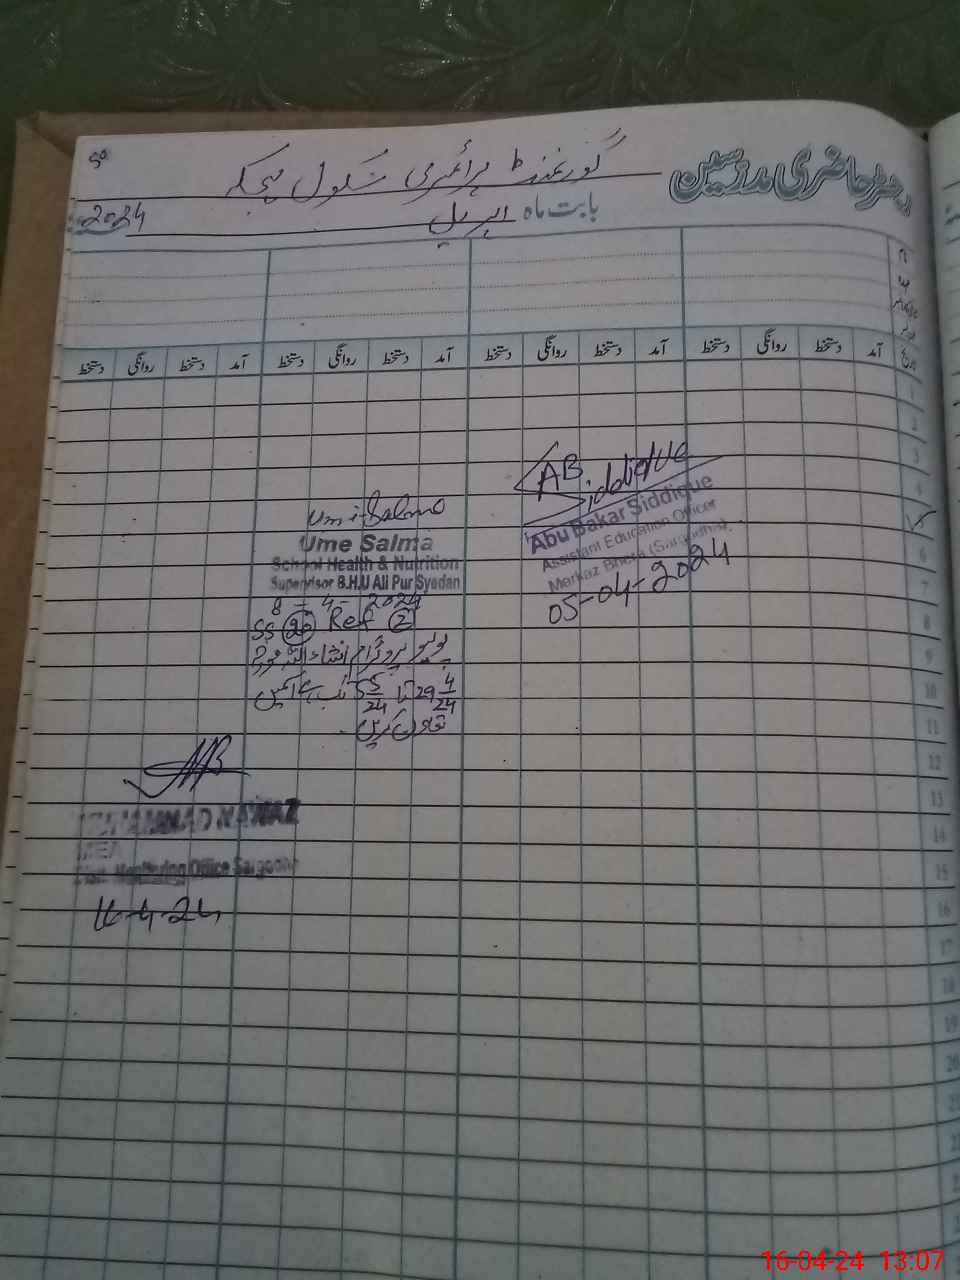 50
رجسٹر حاضری مدرسین گورنمنٹ پرائمری سکول
بابت ماہ اپریل 2024
نام
عہدہ
تاریخ
آمد دستخط روانگی دستخط آمد دستخط روانگی دستخط آمد دستخط روانگی دستخط آمد دستخط روانگی دستخط
1
2
3
4
5
6
7
8
9
10
11
12
13
14
15
16
17
18
19
20
AB Siddique
Abu Bakar Siddique
Assistant Education Officer
Markaz Bhera (Sargodha)
05-04-2024
Umi-Salma
Ume Salma
School Health & Nutrition
Supervisor B.H.U Ali Pur Syedan
8-4-2024
SS 20 Ref 2
پولیو پروگرام انشاء اللہ مورخہ
29 4/24 تا 5 5/24
تعاون کریں
MUHAMMAD NAWAZ
MEA
Distt. Monitoring Office Sargodha
16-4-24
16-04-24 13:07